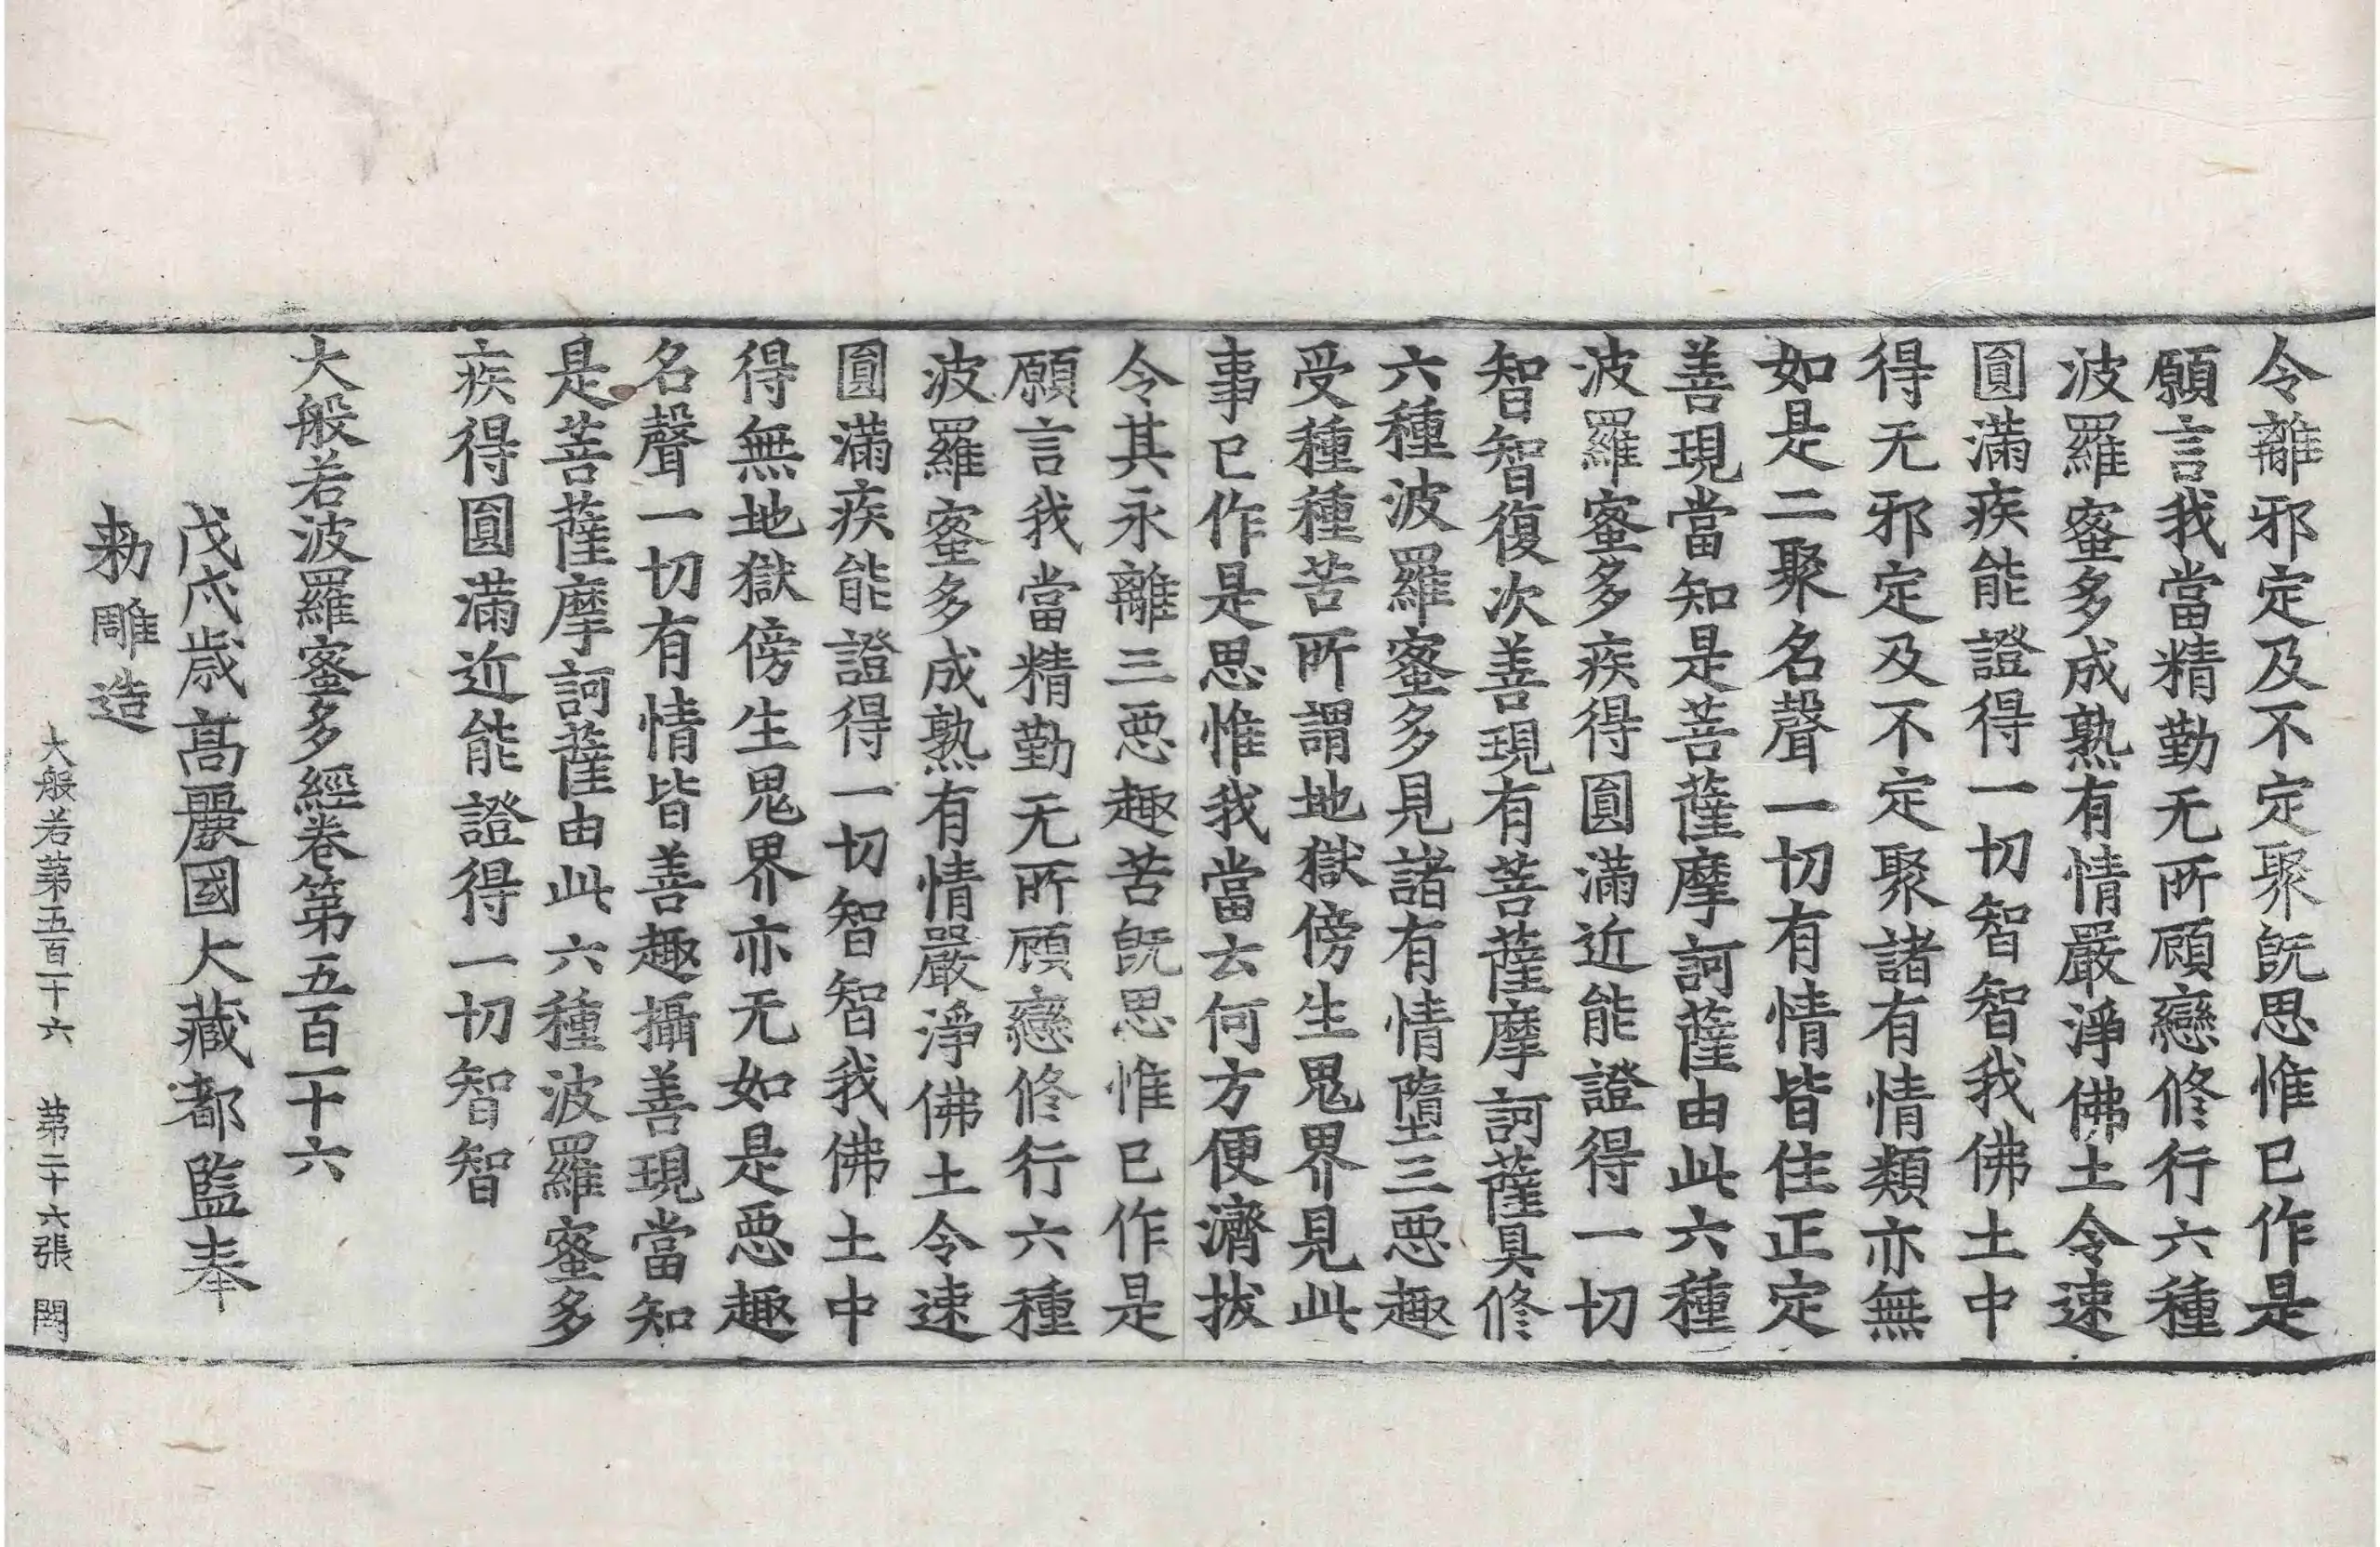 令離邪定及不定聚旣思惟已作是
願言我當精勤无所顧戀修行六種
波羅蜜多成熟有情嚴淨佛土令速
圎滿疾能證得一切智智我佛土中
得无邪定及不定聚諸有情類亦無
如是二聚名聲一切有情皆住正定
善現當知是菩薩摩訶薩由此六種
波羅蜜多疾得圎滿近能證得一切
智智復次善現有菩薩摩訶薩具修
六種波羅蜜多見諸有情墮三惡趣
受種種苦所謂地獄傍生鬼界見此
事已作是思惟我當云何方便濟拔
令其永離三惡趣苦旣思惟已作是
願言我當精勤无所顧戀修行六種
波羅蜜多成熟有情嚴淨佛土令速
圎滿疾能證得一切智智我佛土中
得無地獄傍生鬼界亦无如是惡趣
名聲一切有情皆善趣攝善現當知
是菩薩摩訶薩由此六種波羅蜜多
疾得圎滿近能證得一切智智
大般若波羅蜜多經卷第五百一十六
戊戌歲高麗國大藏都監奉
勑雕造
大般若第五百一十六 第二十六張 閏